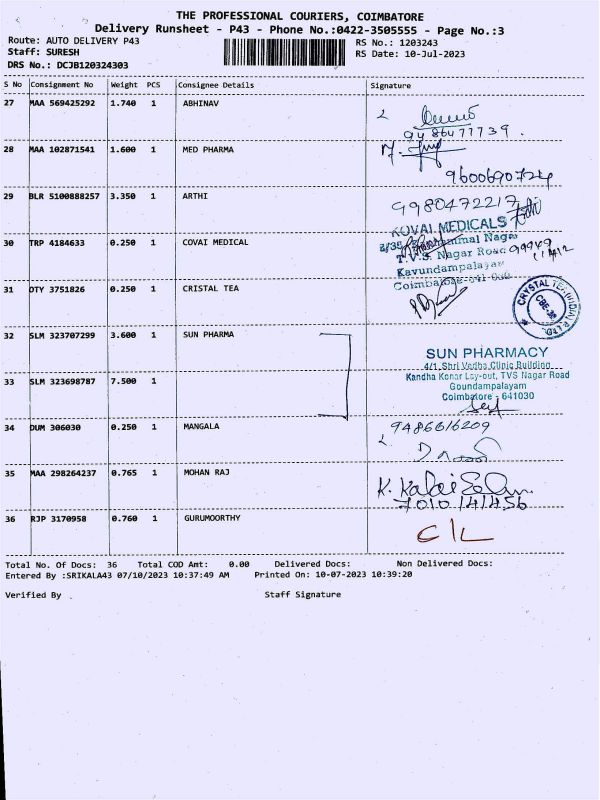 THE PROFESSIONAL COURIERS, COIMBATORE
Delivery Runsheet - P43 - Phone No.:0422-3505555 - Page No.:3
Route: AUTO DELIVERY P43 RS No.: 1203243
Staff: SURESH RS Date: 10-Jul-2023
DRS No.: DCJB120324303
S No Consignment No Weight PCS Consignee Details Signature
27 MAA 569425292 1.740 1 ABHINAV
9486477739.
28 MAA 102871541 1.600 1 MED PHARMA
9600690724
29 BLR 5100888257 3.350 1 ARTHI
9980472217
KOVAI MEDICALS
30 TRP 4184633 0.250 1 COVAI MEDICAL
Nagar
T.V.S. Nagar Road
Kavundampalayam
31 OTY 3751826 0.250 1 CRISTAL TEA
Coimbatore-641 030
CRYSTAL TEA
CBE-38
32 SLM 323707299 3.600 1 SUN PHARMA
SUN PHARMACY
4/1 Shri Vedha Clinic Building
Kandha Konar Lay-out, TVS Nagar Road
33 SLM 323698787 7.500 1
Goundampalayam
Coimbatore - 641030
34 DUM 306030 0.250 1 MANGALA
9486616209
35 MAA 298264237 0.765 1 MOHAN RAJ
K. Kalai Selvan
7010141456
36 RJP 3170958 0.760 1 GURUMOORTHY
C/L
Total No. Of Docs: 36 Total COD Amt: 0.00 Delivered Docs: Non Delivered Docs:
Entered By :SRIKALA43 07/10/2023 10:37:49 AM Printed On: 10-07-2023 10:39:20
Verified By Staff Signature